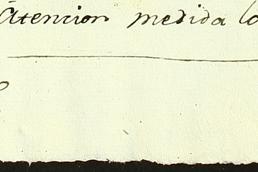 Atencion medida lo